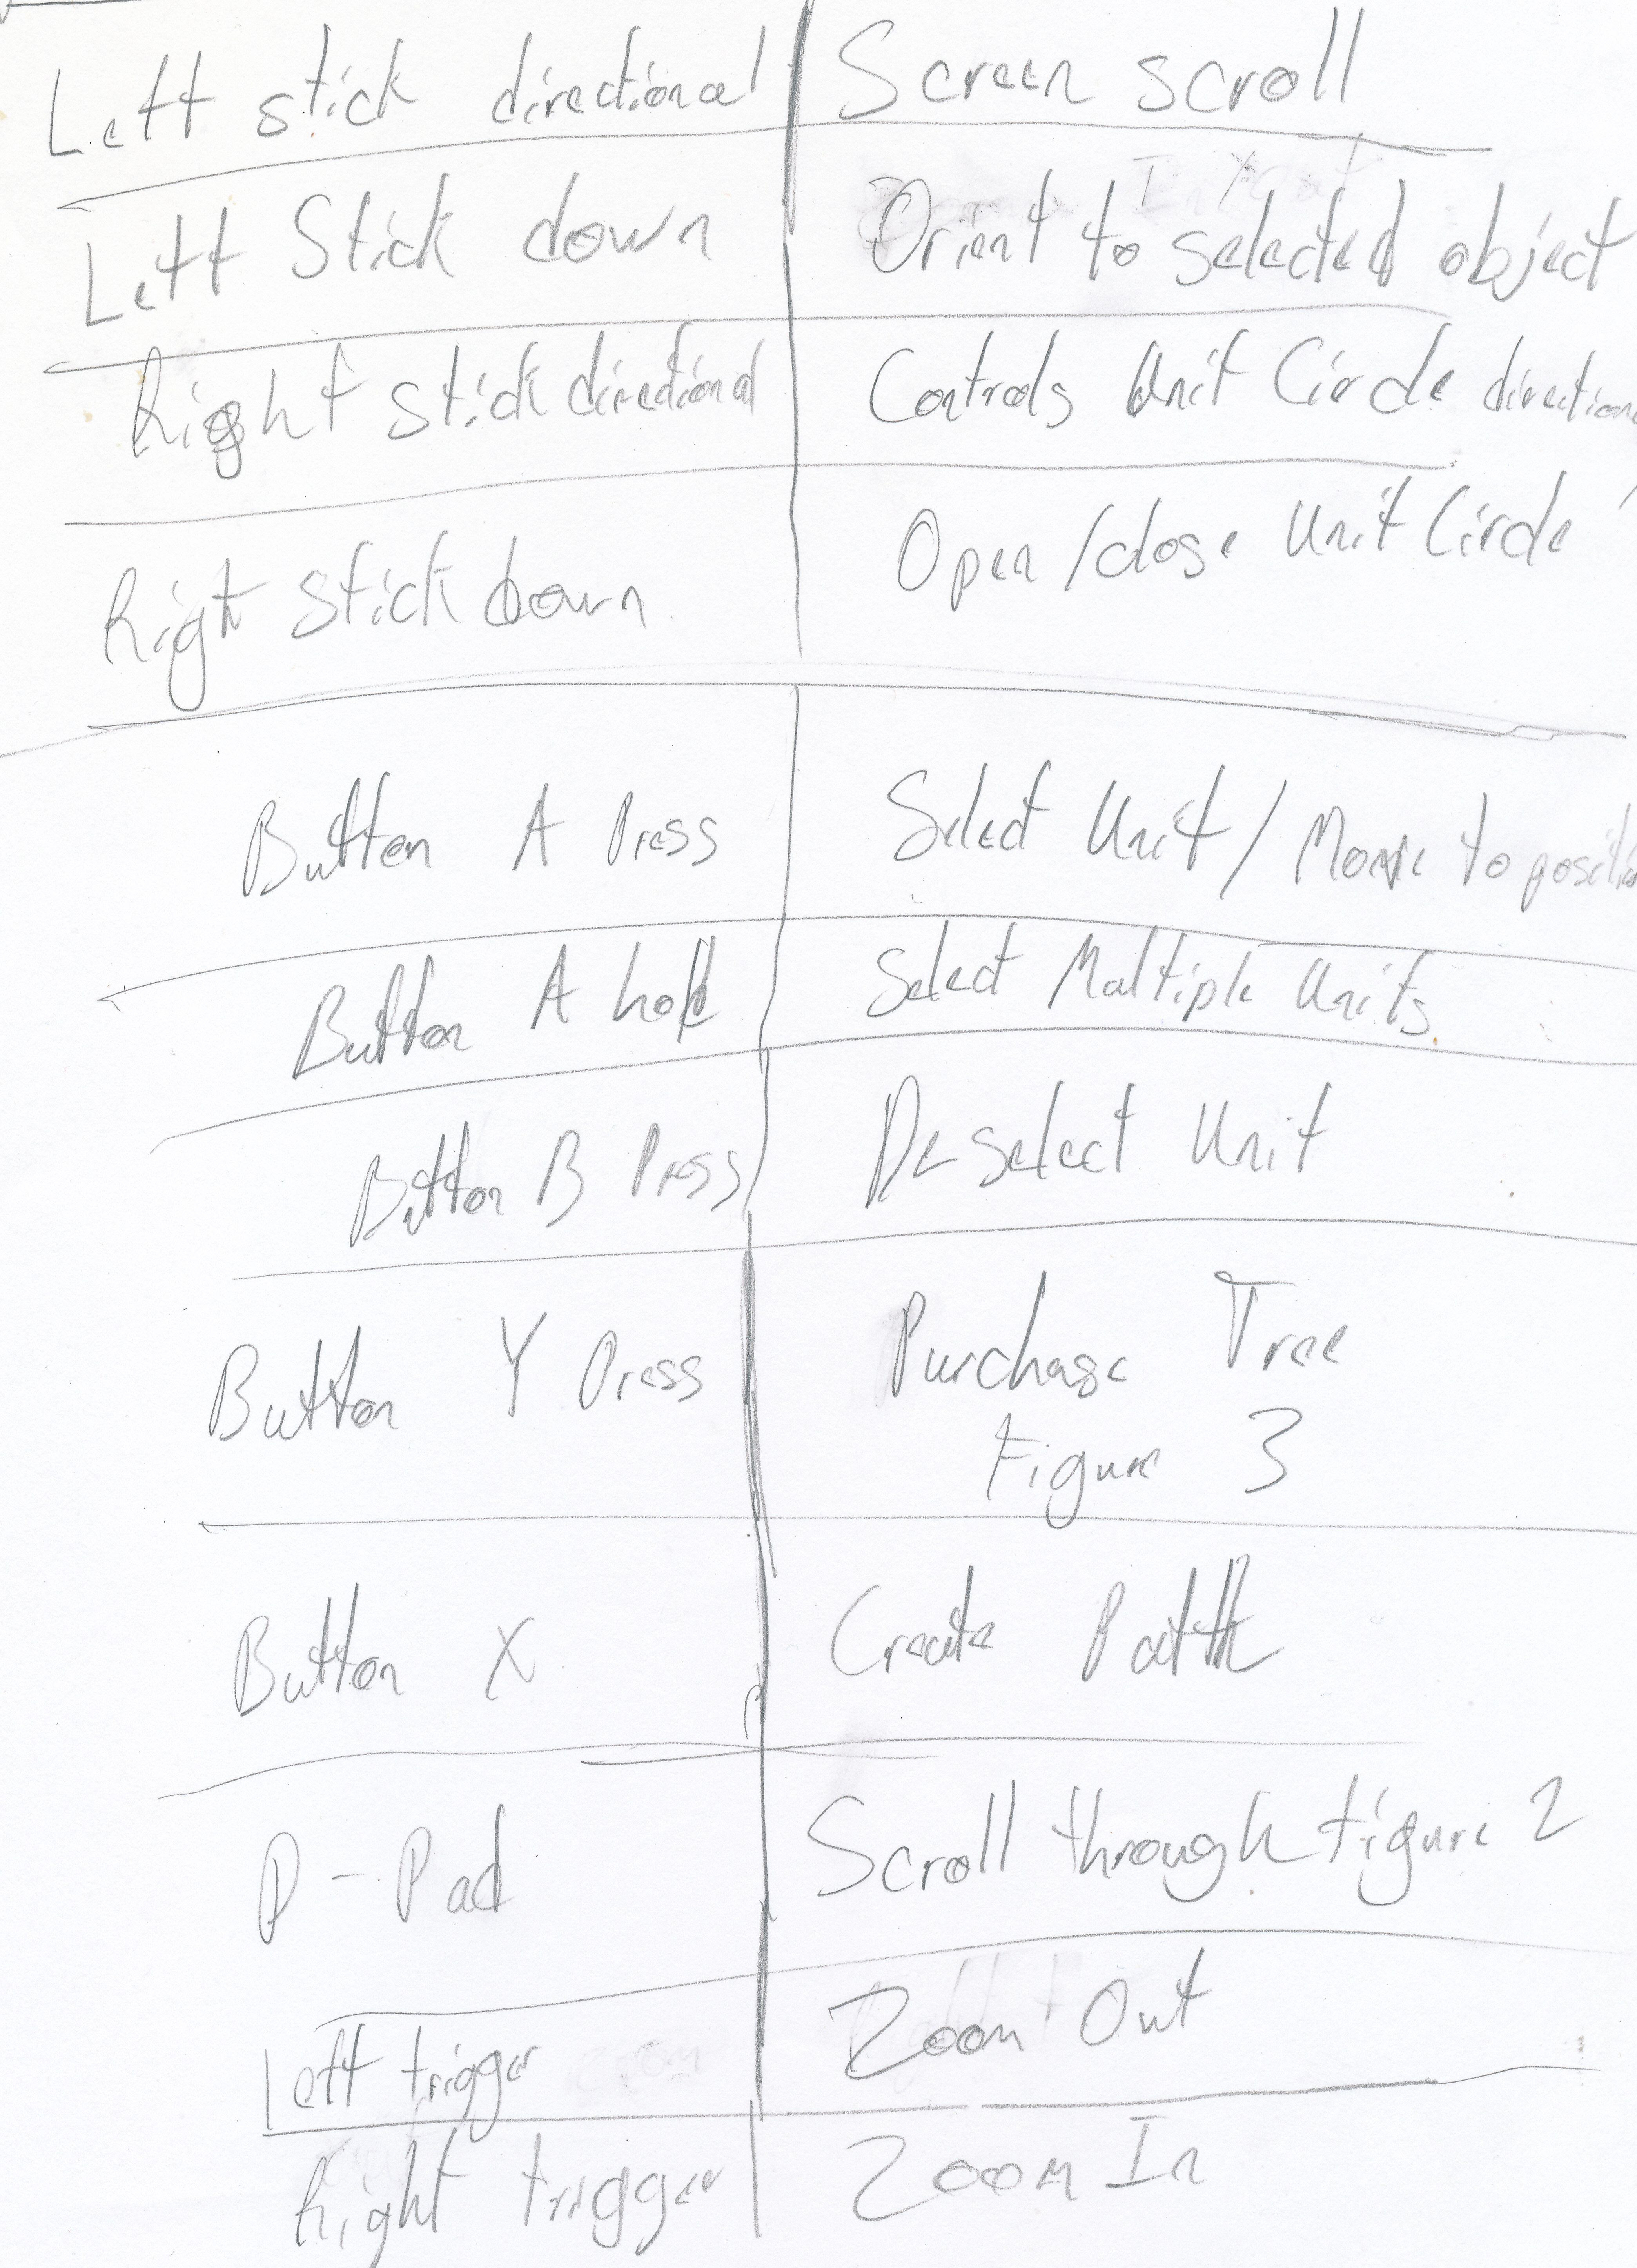 Left stick directional Screen scroll
Left Stick down Orient to selected object
Right stick directional Controls Unit Circle direction
Right stick down Open/close Unit Circle
Button A Press Select Unit / Move to position
Button A hold Select Multiple Units
Button B Press De select Unit
Button Y Press Purchase Tree
Figure 3
Button X Create Path
D-Pad Scroll through figure 2
Left trigger Zoom Out
Right trigger Zoom In